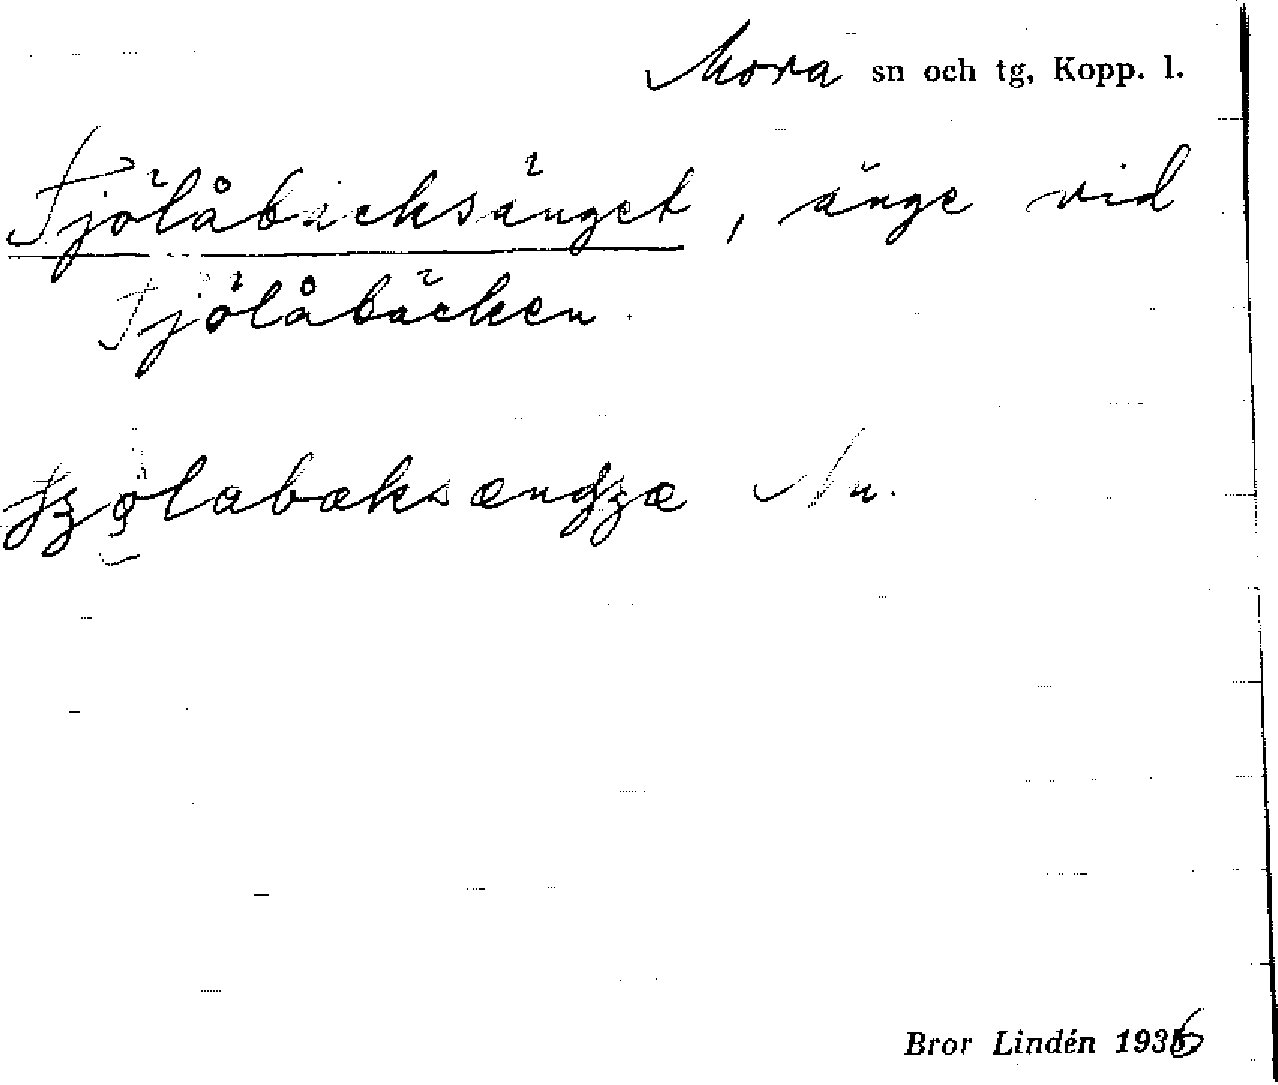 Mora sn och tg, Kopp. l.
Tjölåbäcksänget, änge vid
Tjölåbäcken.
Bror Lindén 1936